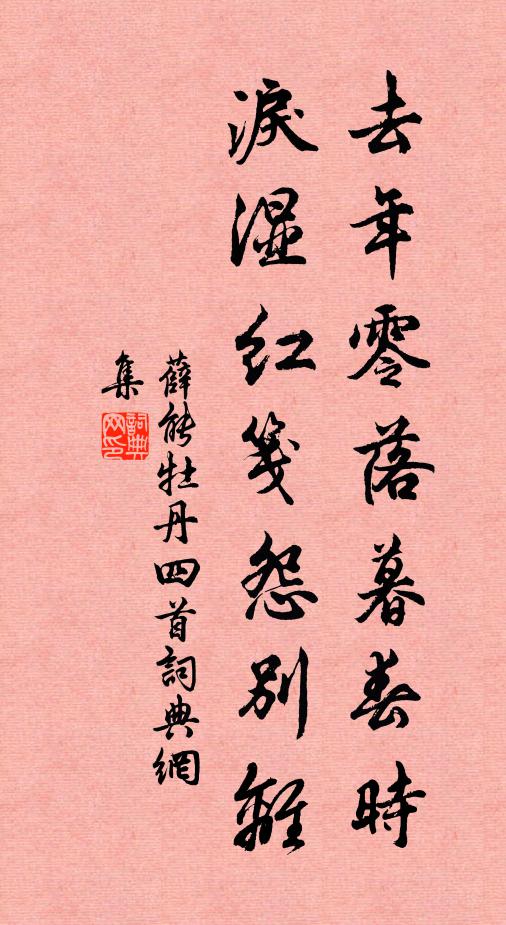 去年零落暮春時
淚濕紅箋怨別離
薛能牡丹四首詞典網
集
詞典網印